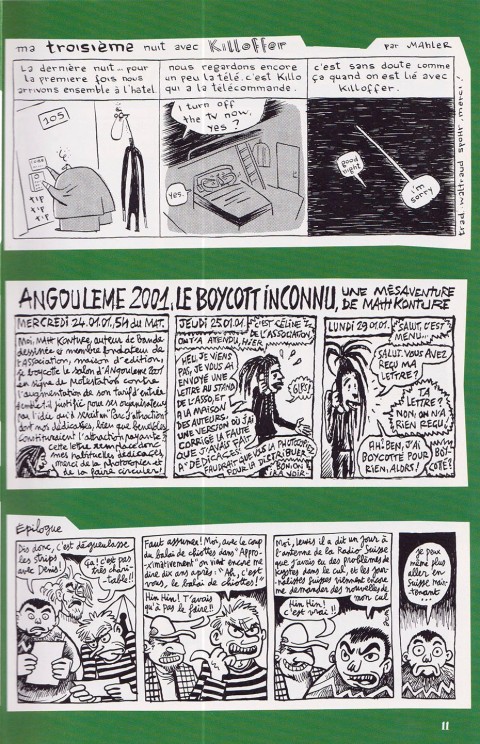 ma troisième nuit avec Killoffer
par Mahler
La dernière nuit... pour
la premiere fois nous
arrivons ensemble à l'hôtel.
105
TIP
TIP
TIP
nous regardons encore
un peu la télé. c'est Killo
qui a la télécommande.
I turn off
the TV now,
yes?
yes.
c'est sans doute comme
ça quand on est lié avec
Killoffer.
good
night
i'm
sorry
trad. waltraud spohr. merci!
ANGOULEME 2001, LE BOYCOTT INCONNU,
UNE MÉSAVENTURE
DE MATT KONTURE
MERCREDI 24.01.01, 5H DU MAT.
Moi, Matt Konture, auteur de bande
dessinée et membre fondateur de
l'Association, maison d'éditions,
je boycotte le salon d'Angouleme 2001
en signe de protestation contre
l'augmentation de son tarif d'entrée
justifié pour ses organisateurs
l'idée qu'il serait un "parc d'attraction"
dont nos dédicaces, bien que bénévoles
constitueraient l'attraction payante
cette lettre remplace donc
mes habituelles dédicaces,
merci de la photocopier et
de la faire circuler!
JEUDI 25.01.01.
C'EST CÉLINE
DE L'ASSOCIATION,
ON T'A ATTENDU, HIER
HEU, JE VIENS
PAS, JE VOUS AI
ENVOYÉ UNE
LETTRE AU STAND
DE L'ASSO, ET
A LA MAISON
DES AUTEURS,
UNE VERSION OÙ J'AI
CORRIGÉ LA FAUTE
QUE J'AVAIS FAIT
A "DÉDICAGES"
FAUDRAIT QUE VOUS LA PHOTOCOPIEZ
POUR LA DISTRIBUER
BON, ON
IRA VOIR.
LUNDI 29.01.01.
SALUT, C'EST
MENU...
SALUT, VOUS AVEZ
REÇU MA
LETTRE?
TA
LETTRE?
NON, ON N'A
RIEN REÇU
AH! BEN, J'AI
BOYCOTTÉ POUR
RIEN, ALORS!
BOY-
COTTÉ?
Épilogue
Dis donc, c'est dégueulasse
les strips
avec Denis!
Ça! c'est pas
très chari-
table!!
Faut assumer! Moi, avec le coup
du balai de chiottes dans "Appro-
ximativement" on vient encore me
dire dix ans après: "Ah, c'est
vous, le balai de chiottes!"
Hin Hin! T'avais
qu'à pas le faire!!
Moi, Lewis il a dit un jour à
l'antenne de la Radio Suisse
que j'avais eu des problèmes de
kystes dans le cul, et les jour-
nalistes suisses viennent encore
me demander des nouvelles de
mon cul
Hin Hin!
c'est vrai!!
Je peux
même plus
aller en
Suisse main-
tenant...
11